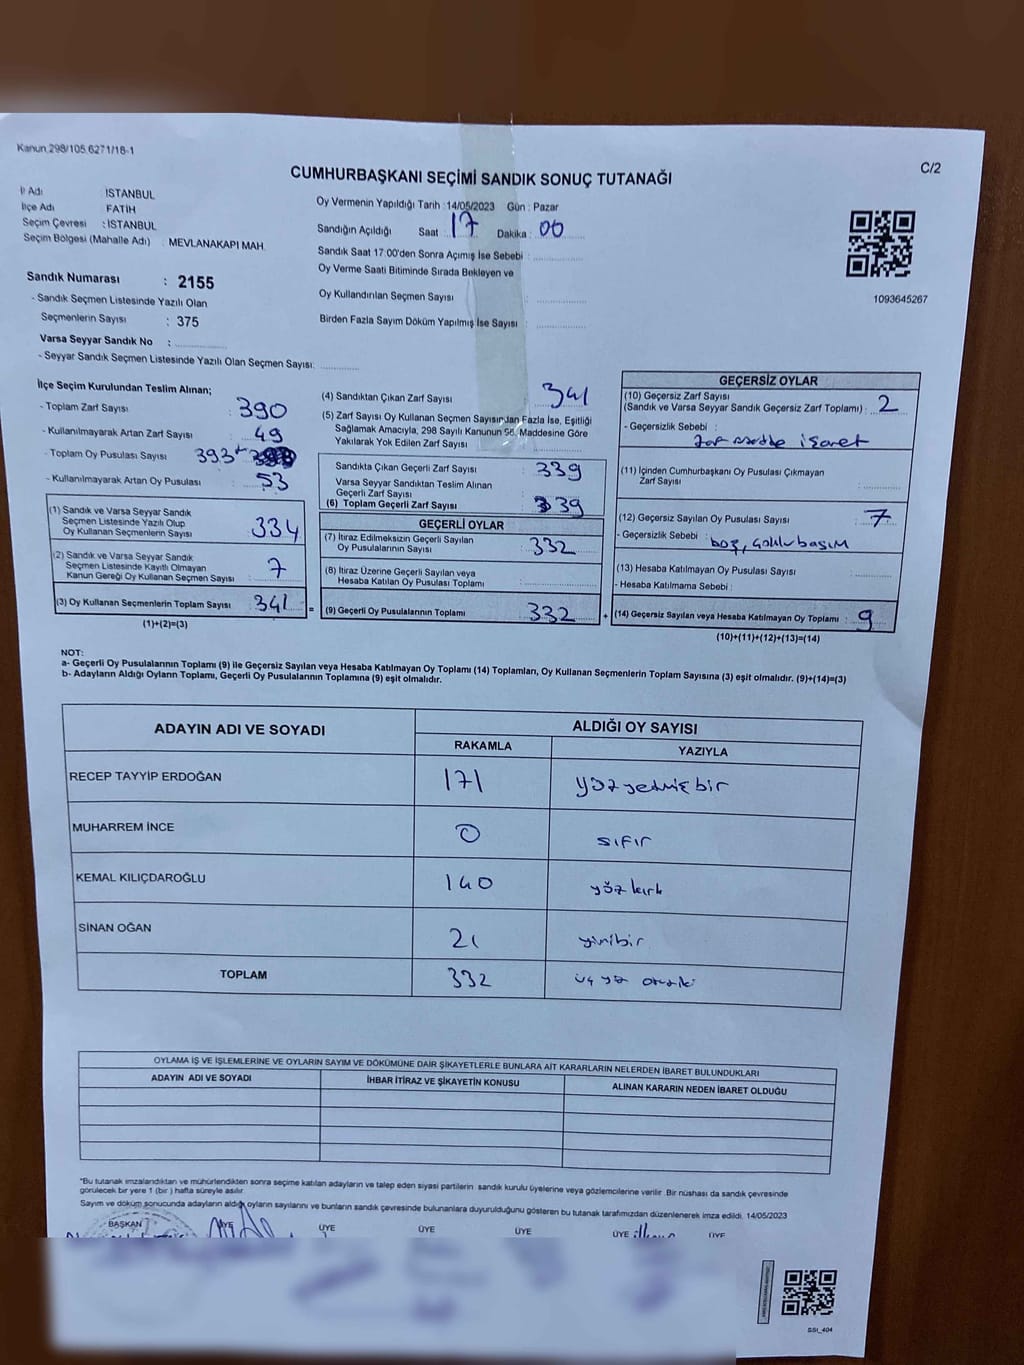 Kanun 298/105,6271/18-1
C/2
CUMHURBAŞKANI SEÇİMİ SANDIK SONUÇ TUTANAĞI
İl Adı : İSTANBUL
İlçe Adı : FATİH
Seçim Çevresi : İSTANBUL
Seçim Bölgesi (Mahalle Adı) : MEVLANAKAPI MAH.
Sandık Numarası : 2155
- Sandık Seçmen Listesinde Yazılı Olan
Seçmenlerin Sayısı : 375
Varsa Seyyar Sandık No :
- Seyyar Sandık Seçmen Listesinde Yazılı Olan Seçmen Sayısı:
Oy Vermenin Yapıldığı Tarih : 14/05/2023 Gün : Pazar
Sandığın Açıldığı Saat : 17 Dakika : 00
Sandık Saat 17:00'den Sonra Açımış İse Sebebi :
Oy Verme Saati Bitiminde Sırada Bekleyen ve
Oy Kullandırılan Seçmen Sayısı :
Birden Fazla Sayım Döküm Yapılmış İse Sayısı :
1093645267
İlçe Seçim Kurulundan Teslim Alınan;
- Toplam Zarf Sayısı : 390
- Kullanılmayarak Artan Zarf Sayısı : 49
- Toplam Oy Pusulası Sayısı 393
- Kullanılmayarak Artan Oy Pusulası : 53
(1) Sandık ve Varsa Seyyar Sandık
Seçmen Listesinde Yazılı Olup
Oy Kullanan Seçmenlerin Sayısı : 334
(2) Sandık ve Varsa Seyyar Sandık
Seçmen Listesinde Kayıtlı Olmayan
Kanun Gereği Oy Kullanan Seçmen Sayısı : 7
(3) Oy Kullanan Seçmenlerin Toplam Sayısı : 341 =
(1)+(2)=(3)
(4) Sandıktan Çıkan Zarf Sayısı : 341
(5) Zarf Sayısı Oy Kullanan Seçmen Sayısından Fazla İse, Eşitliği
Sağlamak Amacıyla, 298 Sayılı Kanunun 98. Maddesine Göre
Yakılarak Yok Edilen Zarf Sayısı :
Sandıkta Çıkan Geçerli Zarf Sayısı : 339
Varsa Seyyar Sandıktan Teslim Alınan
Geçerli Zarf Sayısı :
(6) Toplam Geçerli Zarf Sayısı : 339
GEÇERLİ OYLAR
(7) İtiraz Edilmeksizin Geçerli Sayılan
Oy Pusulalarının Sayısı : 332
(8) İtiraz Üzerine Geçerli Sayılan veya
Hesaba Katılan Oy Pusulası Toplamı :
(9) Geçerli Oy Pusulalarının Toplamı : 332 +
GEÇERSİZ OYLAR
(10) Geçersiz Zarf Sayısı
(Sandık ve Varsa Seyyar Sandık Geçersiz Zarf Toplamı) : 2
- Geçersizlik Sebebi :
işaret
(11) İçinden Cumhurbaşkanı Oy Pusulası Çıkmayan
Zarf Sayısı :
(12) Geçersiz Sayılan Oy Pusulası Sayısı : 7
- Geçersizlik Sebebi : boş,
(13) Hesaba Katılmayan Oy Pusulası Sayısı :
- Hesaba Katılmama Sebebi :
(14) Geçersiz Sayılan veya Hesaba Katılmayan Oy Toplamı : 9
(10)+(11)+(12)+(13)=(14)
NOT:
a- Geçerli Oy Pusulalarının Toplamı (9) ile Geçersiz Sayılan veya Hesaba Katılmayan Oy Toplamı (14) Toplamları, Oy Kullanan Seçmenlerin Toplam Sayısına (3) eşit olmalıdır. (9)+(14)=(3)
b- Adayların Aldığı Oyların Toplamı, Geçerli Oy Pusulalarının Toplamına (9) eşit olmalıdır.
ADAYIN ADI VE SOYADI ALDIĞI OY SAYISI
RAKAMLA YAZIYLA
RECEP TAYYİP ERDOĞAN 171 yüzyetmişbir
MUHARREM İNCE 0 sıfır
KEMAL KILIÇDAROĞLU 140 yüz kırk
SİNAN OĞAN 21 yirmibir
TOPLAM 332 üç yüz otuziki
OYLAMA İŞ VE İŞLEMLERİNE VE OYLARIN SAYIM VE DÖKÜMÜNE DAİR ŞİKAYETLERLE BUNLARA AİT KARARLARIN NELERDEN İBARET BULUNDUKLARI
ADAYIN ADI VE SOYADI İHBAR İTİRAZ VE ŞİKAYETİN KONUSU ALINAN KARARIN NEDEN İBARET OLDUĞU
"Bu tutanak imzalandıktan ve mühürlendikten sonra seçime katılan adayların ve talep eden siyasi partilerin sandık kurulu üyelerine veya gözlemcilerine verilir. Bir nüshası da sandık çevresinde
görülecek bir yere 1 (bir) hafta süreyle asılır.
Sayım ve döküm sonucunda adayların aldığı oyların sayılarını ve bunların sandık çevresinde bulunanlara duyurulduğunu gösteren bu tutanak tarafımızdan düzenlenerek imza edildi. 14/05/2023
BAŞKAN ÜYE ÜYE ÜYE ÜYE ÜYE ÜYE
SSI_404